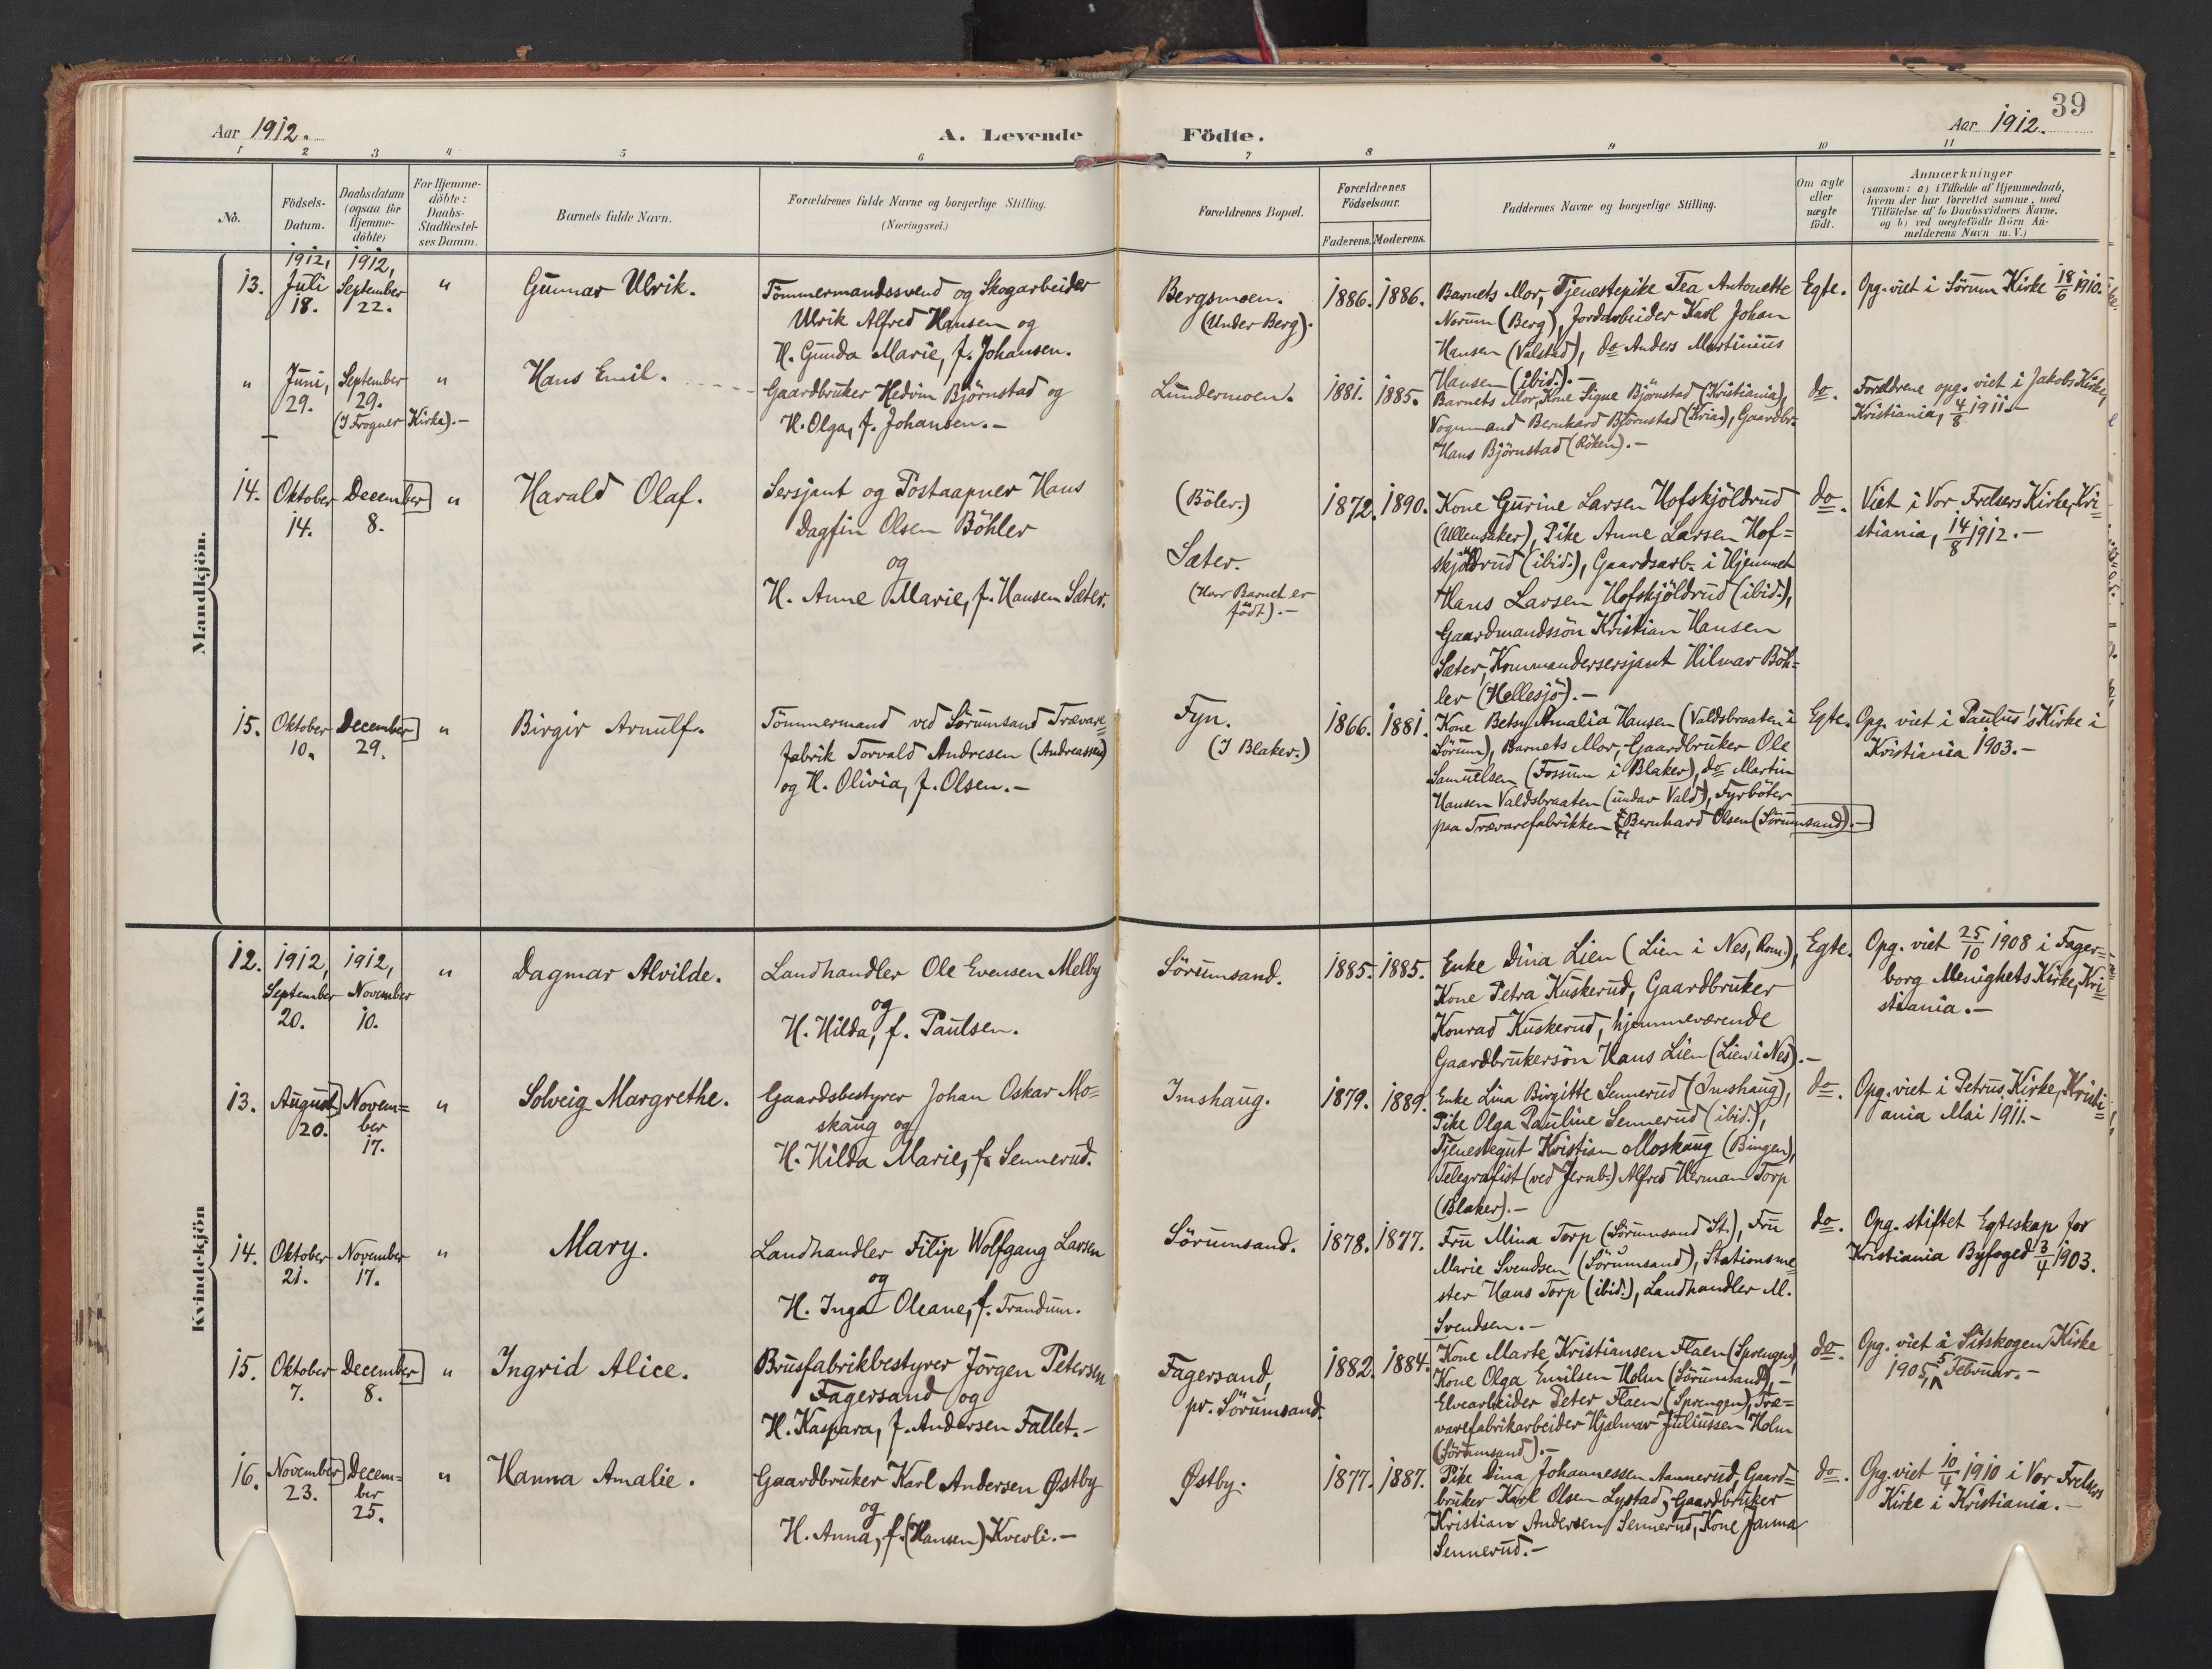 39
Aar 1912.
A. Levende Födte.
Aar 1912.
1 2 3 4 5 6 7 8 9 10 11
No.
Födsels-
Datum.
Daabsdatum
(ogsaa for
Hjemme-
döbte)
For Hjemme-
döbte:
Daabs-
Stadfæstel-
ses Datum.
Barnets fulde Navn.
Forældrenes fulde Navne og borgerlige Stilling.
(Næringsvei.)
Forældrenes Bopæl.
Forældrenes
Födselsaar.
Faderens. Moderens.
Faddernes Navne og borgerlige Stilling.
Om ægte
eller
uægte
födt.
Anmærkninger
(saasom: a) i Tilfælde af Hjemmedaab,
hvem der har forrettet samme, med
Tilföielse af to Daabsvidners Navne.
og b) ved uægtefödte Börn An-
melderens Navn m. V.)
Mandkjön.
13.
1912,
Juli
18.
1912,
September
22.
"
Gunnar Ulrik.
Tömmermandssvend og Skogarbeider
Ulrik Alfred Hansen og
H. Gunda Marie, f. Johansen.
Bergsmoen.
(Under Berg).
1886. 1886.
Barnets Mor, Tjenestepike Tea Antonette
Norum (Berg), Jordarbeider Karl Johan
Hansen (Valstad), do Anders Martinius
Hansen (ibid.).-
Egte.
Opg. viet i Sörum Kirke 18/6 1910.
"
Juni,
29.
September
29.
(I Frogner Kirke).-
"
Hans Emil.
Gaardbruker Hedvin Björnstad og
H. Olga, f. Johansen.-
Lundermoen.
1881. 1885.
Barnets Mor, Kone Signe Björnstad (Kristiania),
Vognmand Bernhard Björnstad (Kria.), Gaardbr.
Hans Björnstad (Röken).-
do.
Foreldrene opg. viet i Jakobs Kirke,
Kristiania, 4/8 1911.-
14.
Oktober
14.
December
8.
"
Harald Olaf.
Sersjant og Postaapner Hans
Dagfin Olsen Böhler
og
H. Anne Marie, f. Hansen Sæter.
(Böler.)
Sæter.
(Hvor Barnet er
födt).-
1872. 1890.
Kone Gurine Larsen Hofskjöldrud
(Ullensaker), Pike Anne Larsen Hof=
skjöldrud (ibid.), Gaardsarb. i Hjemmet
Hans Larsen Hofskjöldrud (ibid.),
Gaardmandssön Kristian Hansen
Sæter, Kommandersersjant Hilmar Böh=
ler (Hellesjö).-
do.
Viet i Vor Frelsers Kirke, Kri=
stiania, 14/8 1912.-
15.
Oktober
10.
December
29.
"
Birgir Arnulf.
Tömmermand ved Sörumsand Trævare=
fabrik Torvald Andresen (Andreassen)
og H. Olivia, f. Olsen.-
Fyn.
(I Blaker.)
1866. 1881.
Kone Betsy Amalia Hansen (Valdsbraaten i
Sörum), Barnets Mor, Gaardbruker Ole
Samuelsen (Fossum i Blaker), do Martin
Hansen Valdsbraaten (under Vald), Fyrböter
paa Trævarefabrikken Bernhard Olsen (Sörumsand).-
Egte.
Opg. viet i Paulus's Kirke i
Kristiania 1903.-
Kvindekjön
12.
1912,
September
20.
1912,
November
10.
"
Dagmar Alvilde.
Landhandler Ole Evensen Melby
og
H. Hilda, f. Paulsen.
Sörumsand.
1885. 1885.
Enke Dina Lien (Lien i Nes, Rom.),
Kone Petra Kuskerud, Gaardbruker
Konrad Kuskerud, hjemmeværende
Gaardbrukersön Hans Lien (Lien i Nes).-
Egte.
Opg. viet 25/10 1908 i Fager=
borg Menighets Kirke, Kri=
stiania.-
13.
August
20.
Novem=
ber
17.
"
Solveig Margrethe.
Gaardsbestyrer Johan Oskar Mo=
skaug og
H. Hilda Marie, f. Sennerud.
Imshaug.
1879. 1889.
Enke Lina Birgitte Sennerud (Imshaug),
Pike Olga Pauline Sennerud (ibid.),
Tjenestegut Kristian Moskaug (Bingen),
Telegrafist (ved Jernb.) Alfred Herman Torp
(Blaker).-
do.
Opg. viet i Petrus Kirke, Kristi=
ania Mai 1911.-
14.
Oktober
21.
November
17.
"
Mary.
Landhandler Filip Wolfgang Larsen
og
H. Inga Oleane, f. Trandum.
Sörumsand.
1878. 1877.
Fru Mina Torp (Sörumsand St.), Fru
Marie Svendsen (Sörumsand), Stationsme=
ster Hans Torp (ibid.), Landhandler M.
Svendsen.-
do.
Opg. stiftet Egteskap for
Kristiania Byfoged 3/4 1903.
15.
Oktober
7.
December
8.
"
Ingrid Alice.
Brusfabrikbestyrer Jörgen Petersen
Fagersand og
H. Kaspara, f. Andersen Fallet.-
Fagersand,
pr. Sörumsand.
1882. 1884.
Kone Marte Kristiansen Flaen (Sprengen),
Kone Olga Emilsen Holm (Sörumsand),-
Elvearbeider Peter Flaen (Sprengen), Træ=
varefabrikarbeider Hjalmar Juliussen Holm
(Sörumsand).-
do.
Opg. viet i Sitskogen Kirke
1905, 5 Februar.-
16.
November
23.
Decem=
ber
25.
"
Hanna Amalie.
Gaardbruker Karl Andersen Østby
og
H. Anna, f. (Hansen) Kvevli.-
Østby.
1877. 1887.
Pike Dina Johannessen Aamerud, Gaard=
bruker Karl Olsen Lystad, Gaardbruker
Kristian Andersen Sennerud, Kone Janna
Sennerud.-
do.
Opg. viet 10/4 1910 i Vor Frelsers
Kirke i Kristiania.-